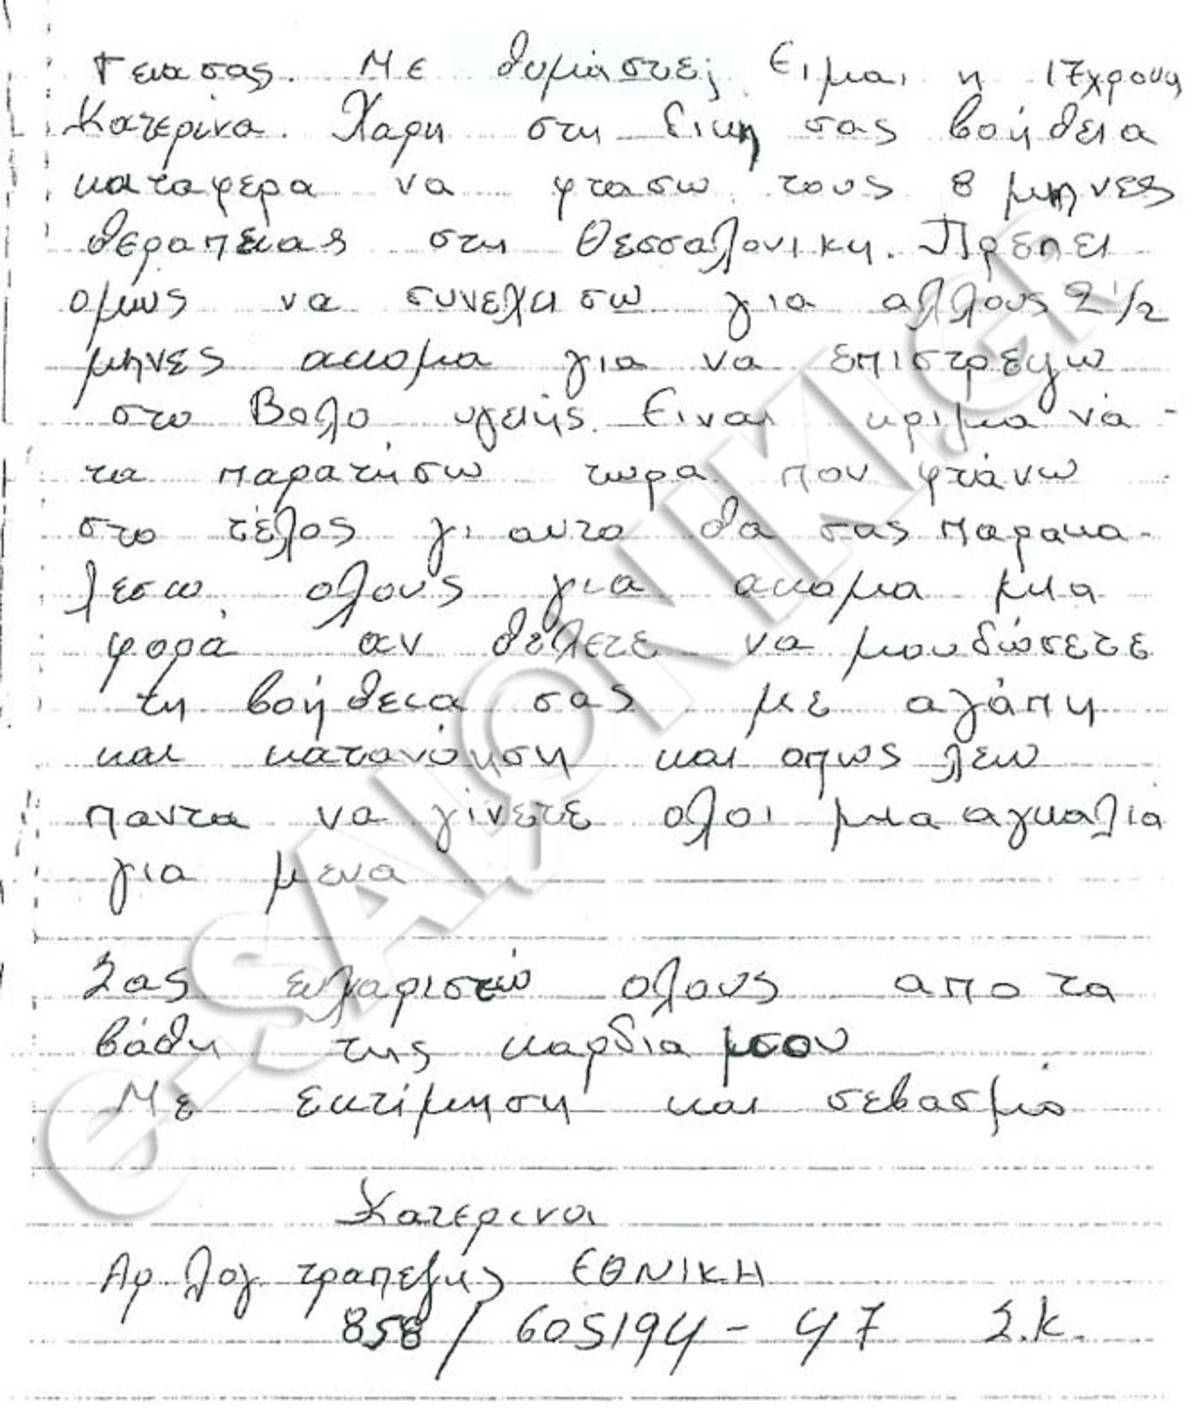 Γεια σας. Με θυμάστε; Ειμαι η 17χρονη
Κατερίνα. Χαρη στη δικη σας βοήθεια
καταφερα να φτασω τους 8 μηνες
θεραπειας στη Θεσσαλονικη. Πρέπει
ομως να συνεχισω για αλλους 2 1/2
μηνες ακομα για να επιστρεψω
στο Βολο υγειής. Ειναι κριμα να
τα παρατήσω τωρα που φτάνω
στο τέλος γι αυτο θα σας παρακα-
λεσω ολους για ακομα μια
φορά αν θέλετε να μου δώσετε
τη βοήθεια σας με αγάπη
και κατανόηση και οπως λεω
παντα να γίνετε ολοι μια αγκαλιά
για μενα
Σας ευχαριστώ ολους απο τα
βάθη της καρδια μσου
Με εκτίμηση και σεβασμό
Κατερινα
Αρ. λογ. τραπεζης ΕΘΝΙΚΗ
858 / 605194 - 47 Σ.Κ.
e-SALONIKI.GR